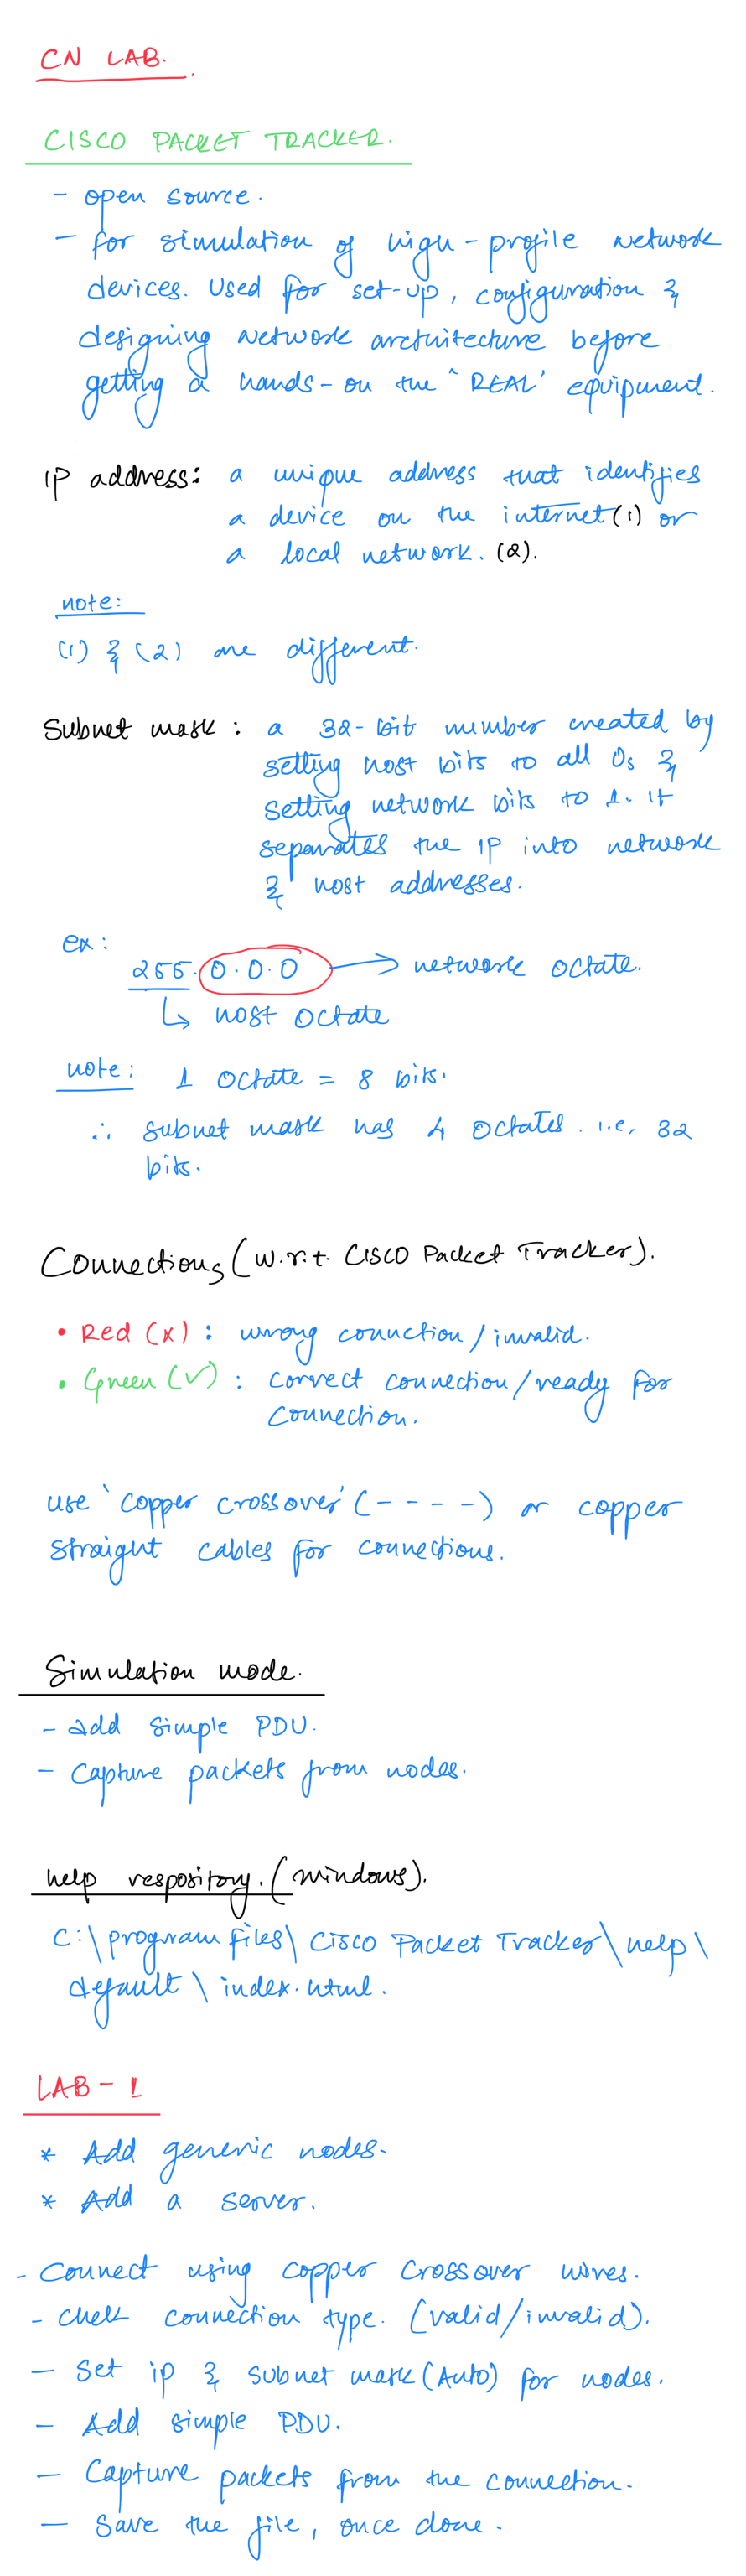 CN LAB.
CISCO PACKET TRACKER.
- open source.
- for simulation of high-profile network
devices. Used for set-up, configuration &
designing network architecture before
getting a hands-on the 'REAL' equipment.
IP address: a unique address that identifies
a device on the internet (1) or
a local network. (2).
note:
(1) & (2) are different.
Subnet mask: a 32-bit number created by
setting host bits to all 0s &
setting network bits to 1. It
separates the IP into network
& host addresses.
ex:
255.0.0.0 → network octate.
↳ host octate
note: 1 octate = 8 bits.
∴ subnet mask has 4 octates. i.e, 32
bits.
Connections (w.r.t. CISCO Packet Tracker).
• Red (x): wrong connction/invalid.
• Green (✓): correct connection/ready for
connection.
use 'copper crossover' (----) or copper
straight cables for connections.
Simulation mode.
- add simple PDU.
- Capture packets from nodes.
help respository. (windows).
C:\program files\ Cisco Packet Tracker\help\
default\index.html.
LAB-1
* Add generic nodes.
* Add a server.
- Connect using copper crossover wires.
- chek connection type. (valid/invalid).
- Set ip & subnet mask (Auto) for nodes.
- Add simple PDU.
- Capture packets from the connection.
- Save the file, once done.